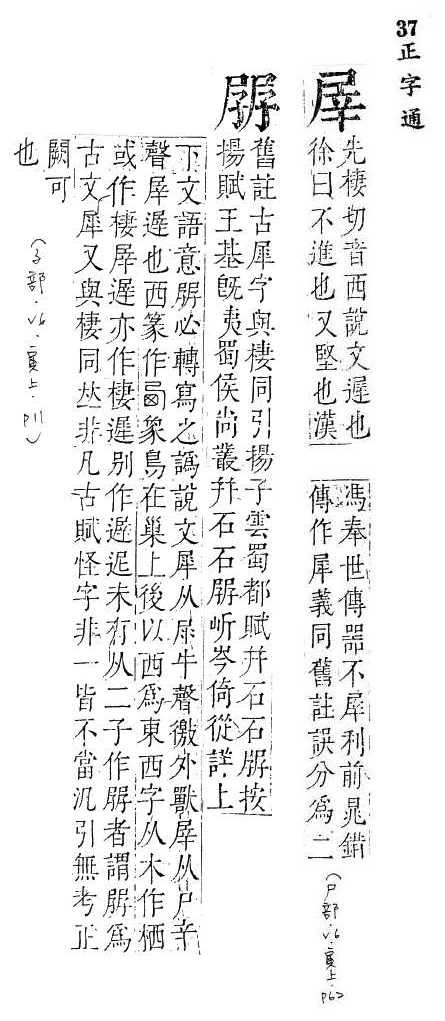 37正字通
屖
先棲切音西說文遲也
徐曰不進也又堅也漢
馮奉世傳器不犀利前晁錯
傳作犀義同舊註誤分爲二
(尸部.V6.寅上.P62)
舊註古犀字與棲同引揚子雲蜀都賦幷石石按
揚賦王基旣夷蜀侯尚叢幷石石岓岑倚從詳上
下文語意必轉寫之譌說文犀从尾牛聲徼外獸屖从尸辛
聲屖遲也西篆作象鳥在巢上後以西爲東西字从木作栖
或作棲屖遲亦作棲遲別作遟迡未有从二子作者謂爲
古文犀又與棲同𠀤非凡古賦怪字非一皆不當汎引無考正
闕可
也
(子部.V6.寅上.P11)